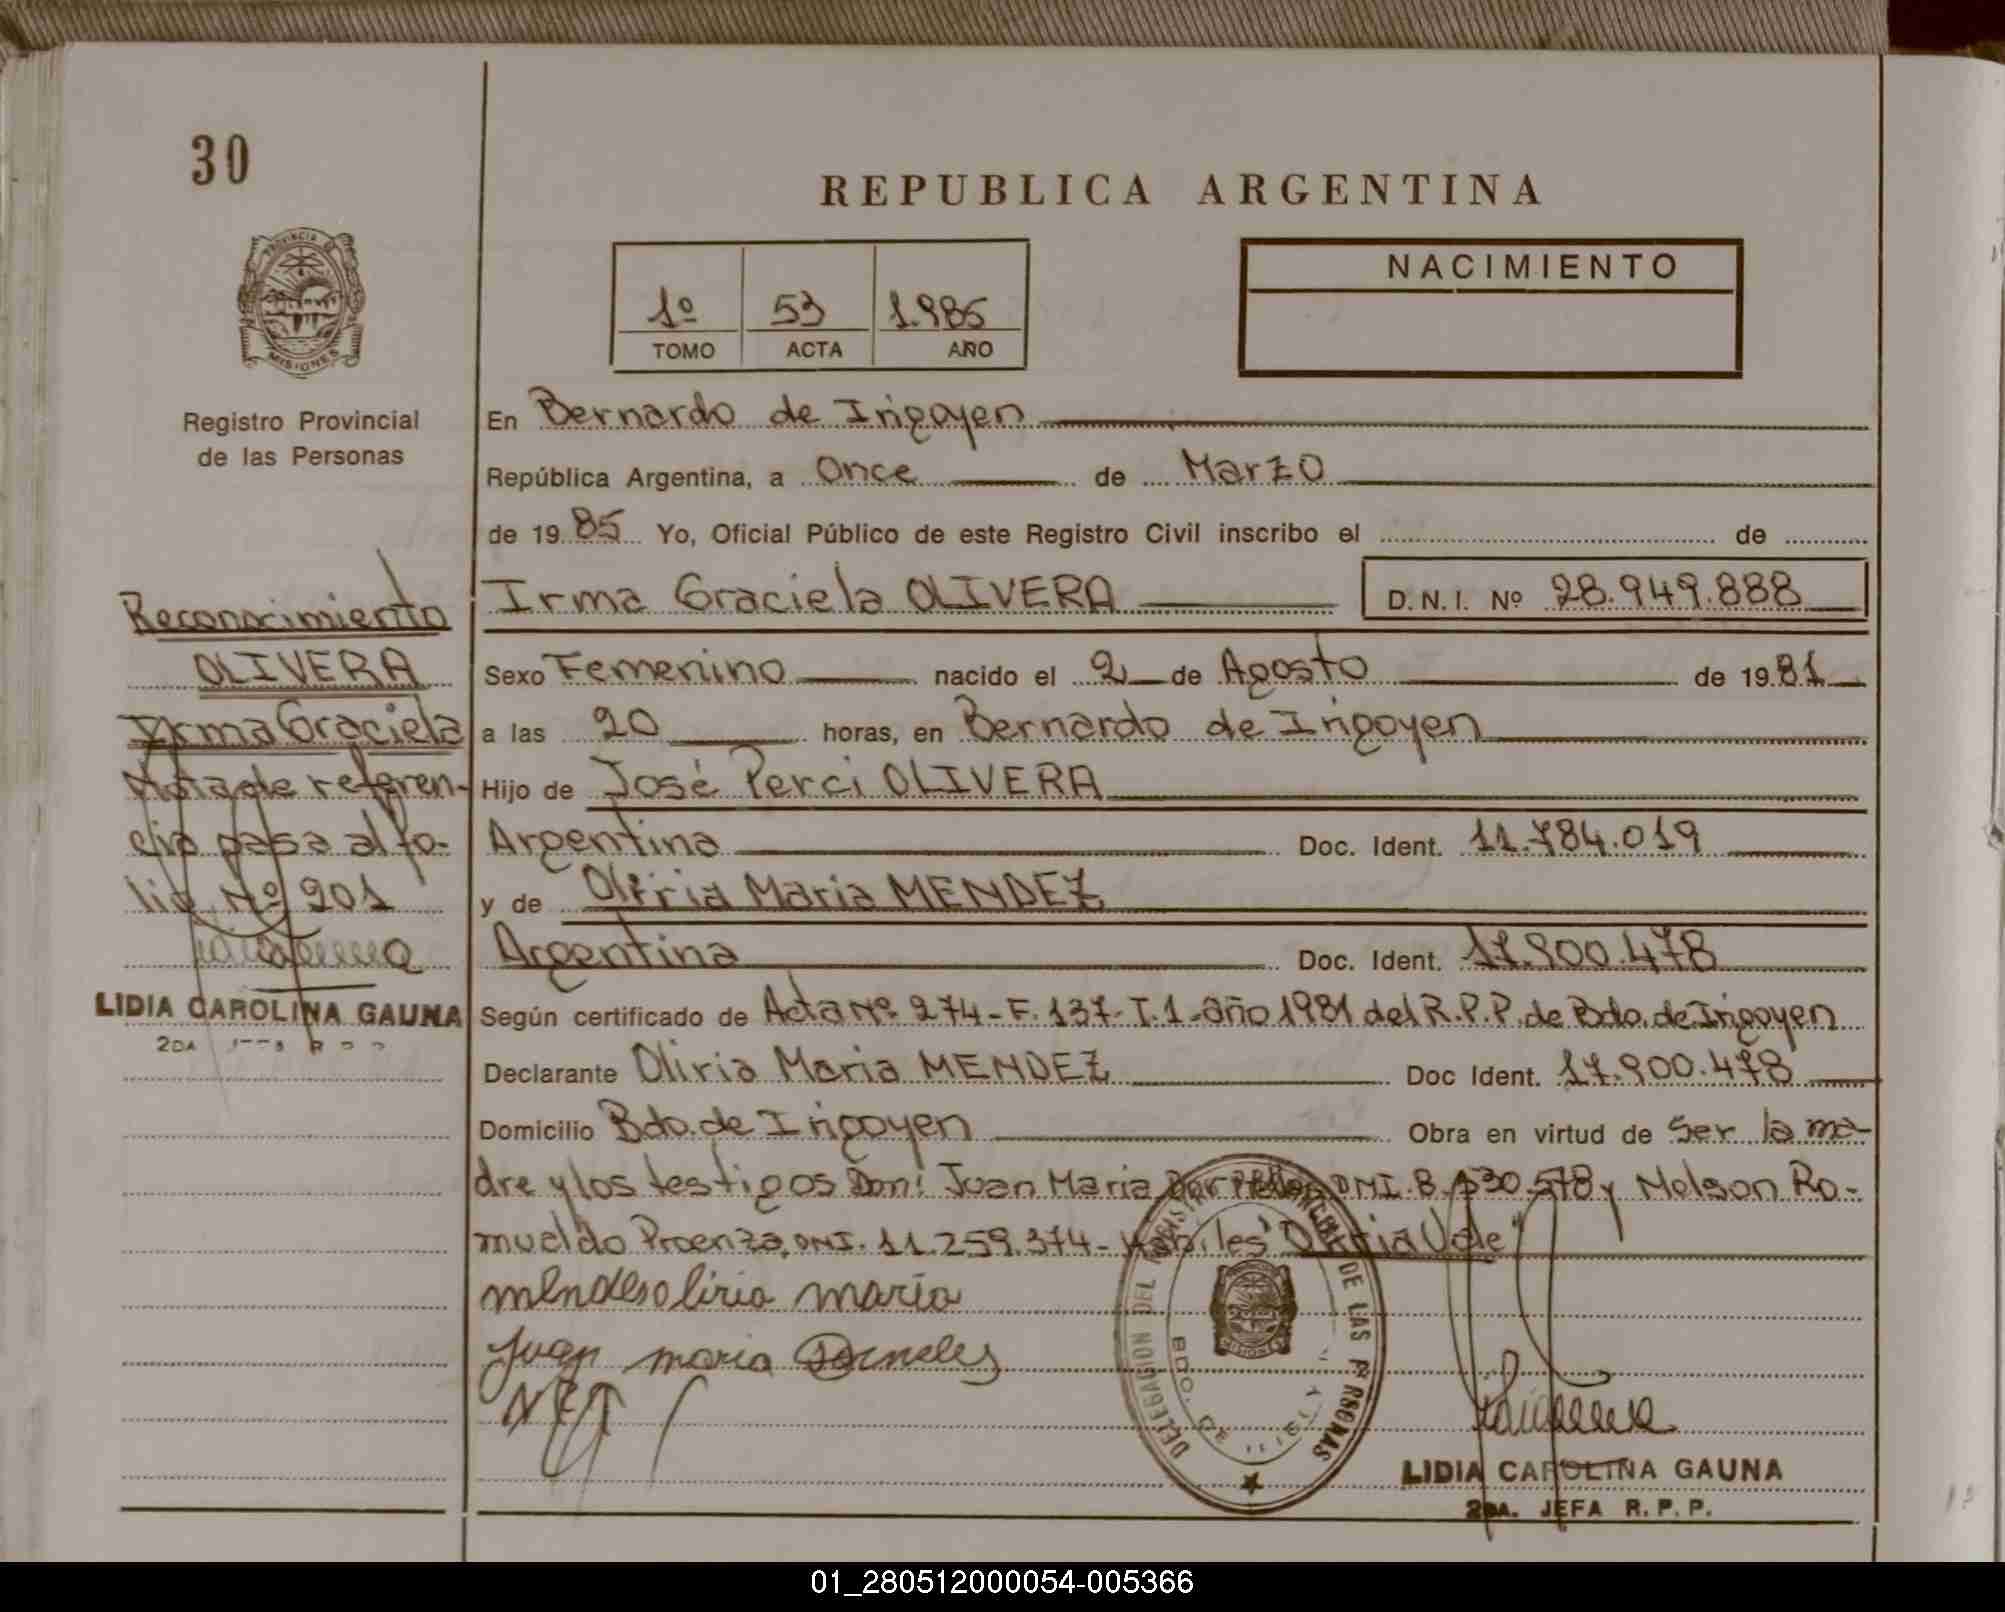 30
REPUBLICA ARGENTINA
1º 53 1.985
TOMO ACTA AÑO
NACIMIENTO
PROVINCIA DE
MISIONES
Registro Provincial
de las Personas
Reconocimiento
OLIVERA
Irma Graciela
Nota de referen-
cia pasa al fo-
lio Nº 201
LIDIA CAROLINA GAUNA
2DA
En Bernardo de Irigoyen
República Argentina, a Once de Marzo
de 19 85 Yo, Oficial Público de este Registro Civil inscribo el de
Irma Graciela OLIVERA D.N.I. Nº 28.949.888
Sexo Femenino nacido el 2 de Agosto de 19 81
a las 20 horas, en Bernardo de Irigoyen
Hijo de José Perci OLIVERA
Argentina Doc. Ident. 11.784.019
y de Oliria Maria MENDEZ
Argentina Doc. Ident. 17.900.478
Según certificado de Acta Nº 274-F.137-T.1-año 1981 del R.P.P. de Bdo. de Irigoyen
Declarante Oliria Maria MENDEZ Doc Ident. 17.900.478
Domicilio Bdo. de Irigoyen Obra en virtud de Ser la ma-
dre y los testigos Don: Juan Maria DNI. 8. y Nelson Ro-
mualdo Proenza, DNI. 11.259.374- Habiles "Oliria Vale"
mendes oliria maria
Juan maria Dorneles
DELEGACION DEL REGISTRO PROVINCIAL DE LAS PERSONAS
BDO. DE
MISIONES
LIDIA CAROLINA GAUNA
2DA. JEFA R.P.P.
01_280512000054-005366